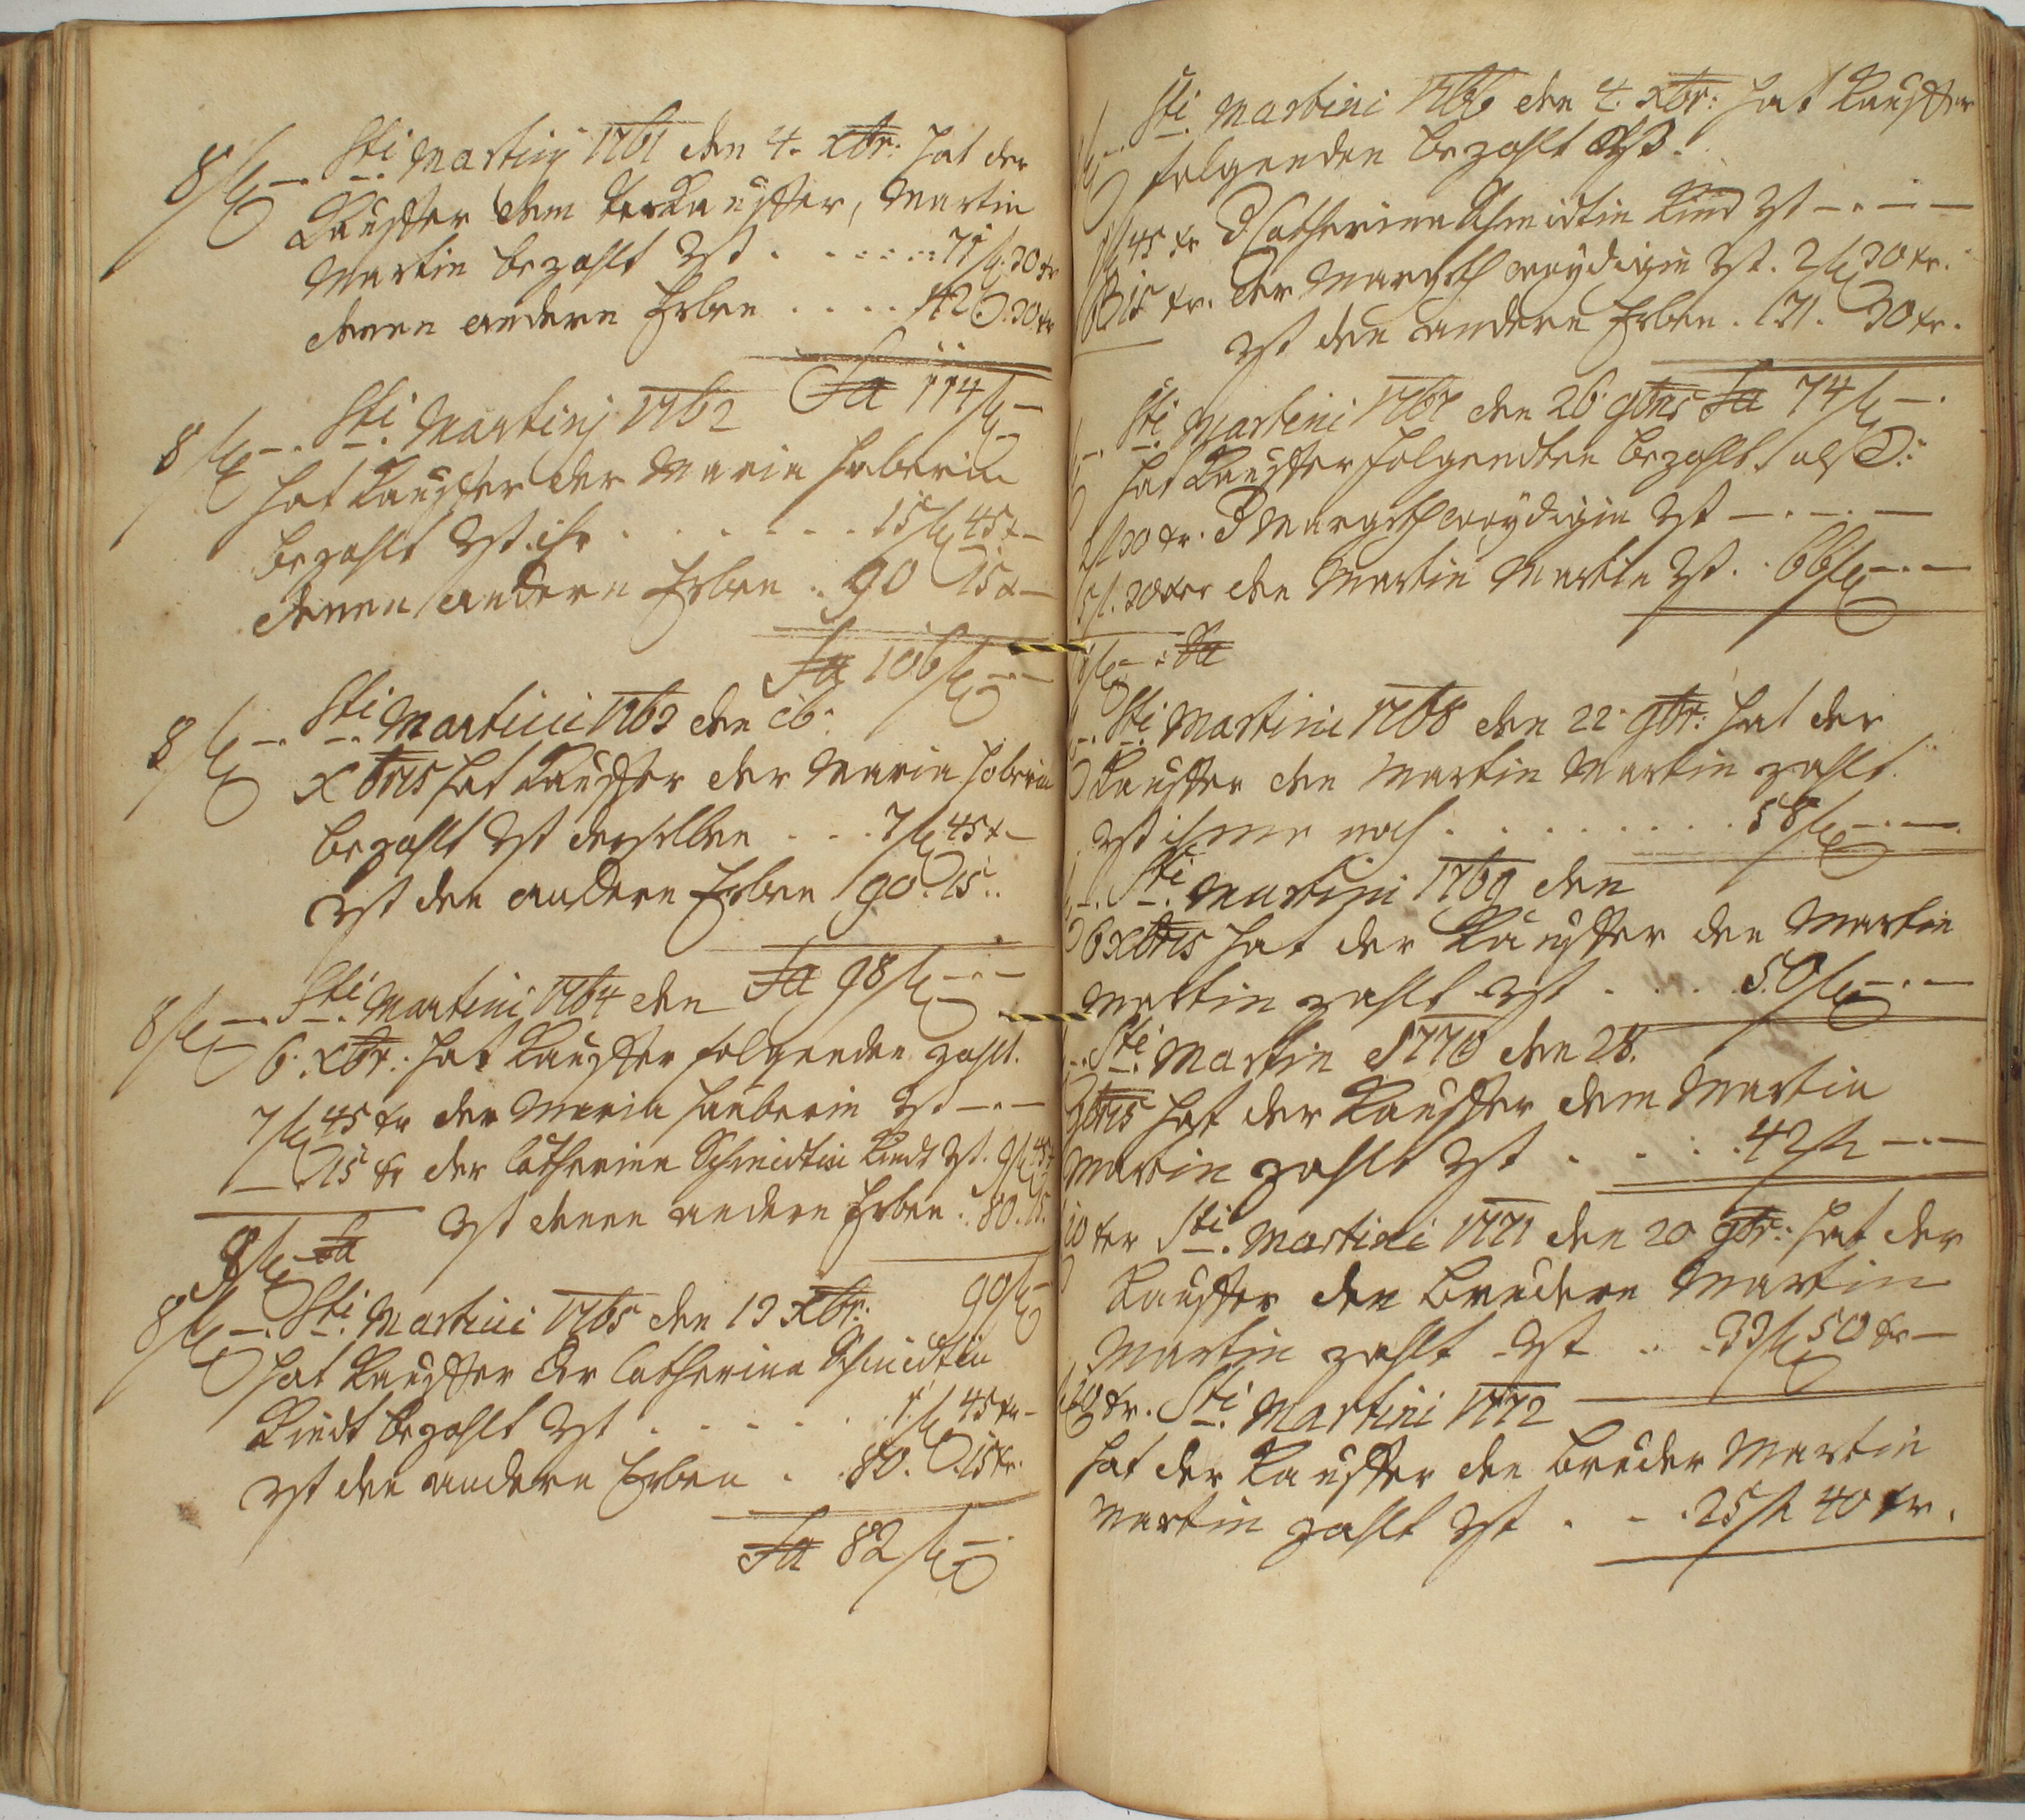 8 fl — . Sti Martiny 1761 den 4. Xbr: hat der
Kauffer dem Verkauffer, Martin
Martin bezahlt Rst . . . . . . 71 fl 30 kr
denen andern Erben . . . . 42 . 30 kr
Sa 114 fl —
8 fl — . Sti Martinj 1762
hat Kauffer der Maria Haberin
bezahlt Rst ihr . . . . . . 15 fl 45 x —
denen andern Erben . 90 15 x —
Sa 106 fl —
8 fl — . Sti Martini 1763 den 6.
Xbris hat Kauffer der Maria Haberin
bezahlt Rst derselben . . . 7 fl 45 x —
Rst den andern Erben 90 . 15 . .
Sa 98 fl — . —
8 fl — . Sti Martini 1764 den
6. Xbr: hat Kauffer folgenden zahlt.
7 fl 45 kr der Maria Hauberin Rst — . —
— 15 kr der Catherina Schmidtin Kindt Rst . 9 fl 45
8 fl — Sa Rst denen andern Erben . . 80 . 15 .
90 fl —
8 fl — . Sti Martini 1765 den 13 Xbr:
hat Kauffer der Catherina Schmidtin
Kindt bezahlt Rst . . . . . . 1 fl 45 kr —
Rst den andern Erben . . 80 . 15 kr .
Sa 82 fl —
Sti Martini 1766 den 4. Xbr: hat Kauffer
folgenden bezahlt
45 kr Catherina Schmidtin Kind Rst — . — . —
15 kr. der Margreth Rst . 2 fl 30 kr.
Rst den andern Erben . 71 . 30 kr.
Sti Martini 1767 den 26 9bris Sa 74 fl — .
hat Kauffer folgendten bezahlt, als:
30 kr. Margreth Rst — . — . —
30 kr den Martin Martin Rst . . 66 fl — . —
fl — : Sa
Sti Martini 1768 den 22. 9br: hat der
Kauffer den Martin Martin zahlt.
Rst ihme noch . . . . . . . . 58 fl — . —
Sti Martini 1769 den
6 Xbris hat der Kauffer den Martin
Martin zahlt Rst . . . . 50 fl — . —
Sti Martin 1770 den 28.
9bris hat der Kauffer dem Martin
Martin zahlt Rst . . . . . 42 fl — . —
10 kr Sti Martini 1771 den 20 9br: hat der
Kauffer den Brudern Martin
Martin zahlt Rst . . . 33 fl 50 kr —
10 kr. Sti Martini 1772
hat der Kauffer den Bruder Martin
Martin zahlt Rst . . . 25 fl 40 kr .